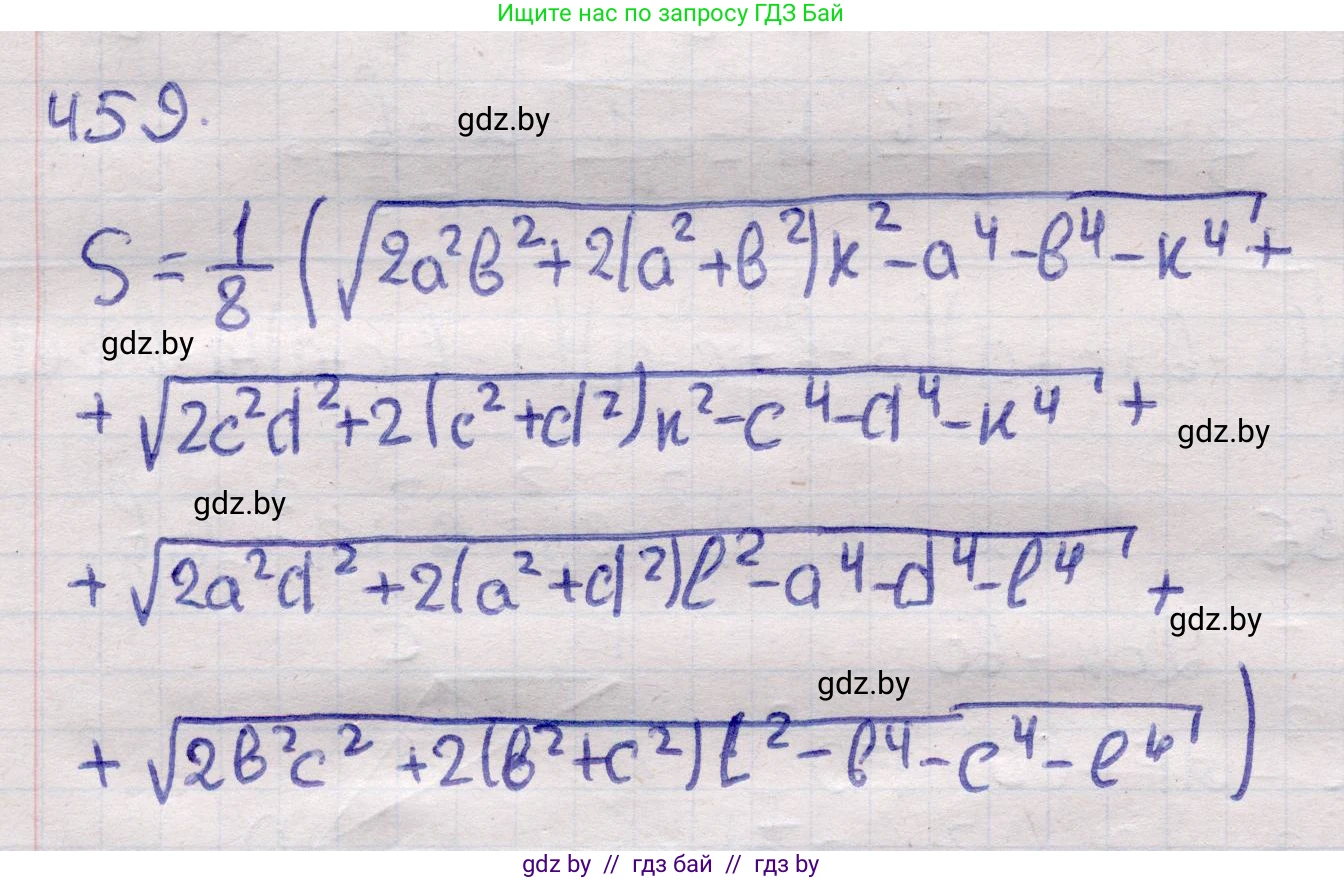 Ищите нас по запросу ГДЗ Бай
459.
gdz.by
S = 1/8 (√(2a²b² + 2(a² + b²)k² - a⁴ - b⁴ - k⁴) +
gdz.by
+ √(2c²d² + 2(c² + d²)k² - c⁴ - d⁴ - k⁴) +
gdz.by
gdz.by
+ √(2a²d² + 2(a² + d²)l² - a⁴ - d⁴ - l⁴) +
gdz.by
gdz.by
+ √(2b²c² + 2(b² + c²)l² - b⁴ - c⁴ - l⁴))
gdz by // гдз бай // гдз by